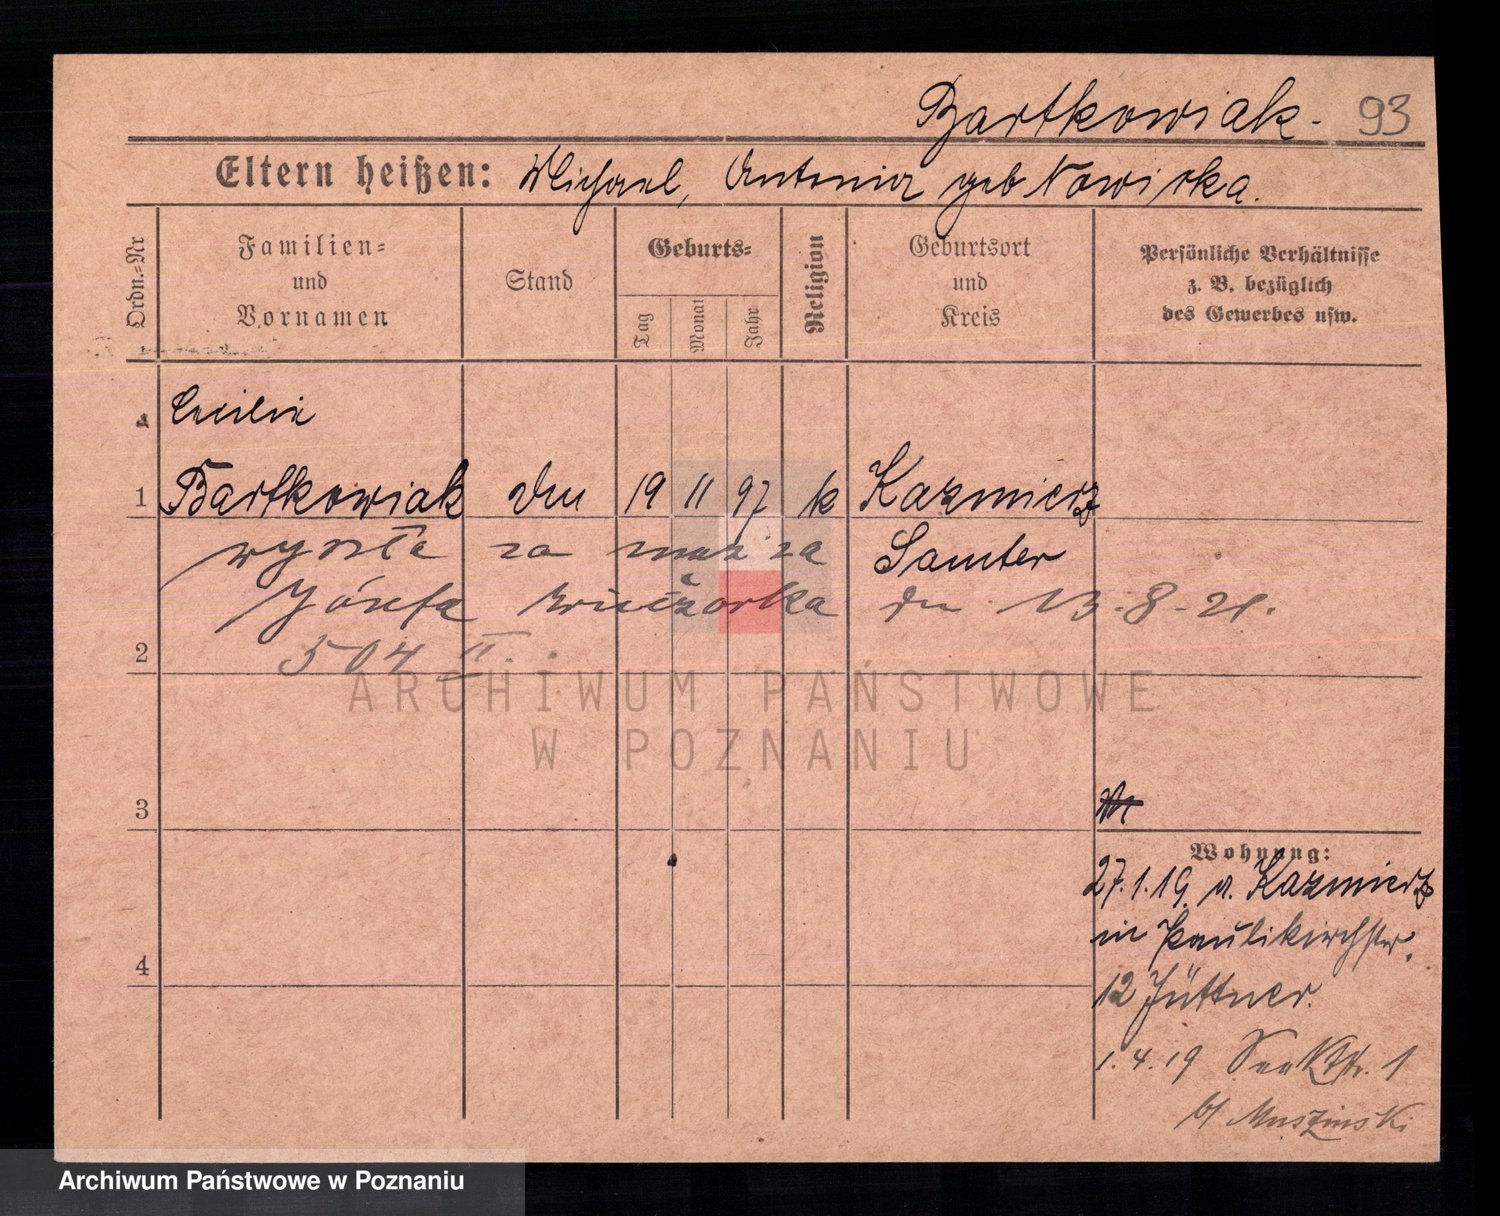 Bartkowiak. 93
Eltern heißen: Michael, Antonia geb Nowicka.
Ordn.=Nr
Familien=
und
Vornamen
Stand
Geburts=
Tag
Monat
Jahr
Religion
Geburtsort
und
Kreis
Persönliche Verhältnisse
z. B. bezüglich
des Gewerbes usw.
Cecilie
1 Bartkowiak 19 11 97 k Kazmierz
wyszła za mąż za Samter
Józefa Wieczorka 13-8-21.
504 II.
2
3
4
Wohnung:
27.1.19 v. Kazmierz
in Paulikirchstr.
12 Jüttner.
1.4.19 1
b/ Muszinski
ARCHIWUM PAŃSTWOWE
W POZNANIU
Archiwum Państwowe w Poznaniu